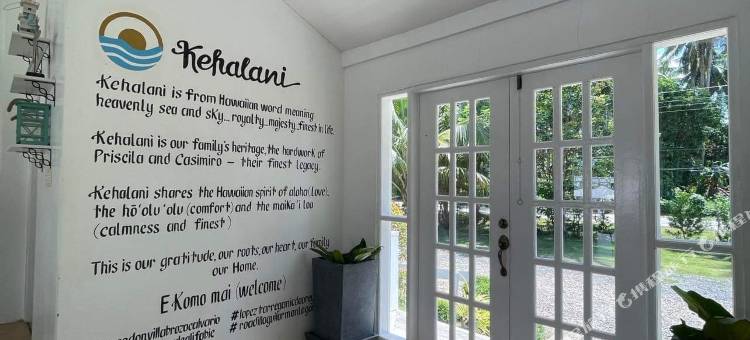 Kehalani
Kehalani is from Hawaiian word meaning
heavenly sea and sky... royalty...majesty...finest in life.
Kehalani is our family's heritage, the hardwork of
Priscila and Casimiro - their finest legacy.
Kehalani shares the Hawaiian spirit of aloha (love),
the hō'olu 'olu (comfort) and the maika 'i loa
(calmness and finest)
This is our gratitude, our roots, our heart, our family
our Home.
E Komo mai (welcome)